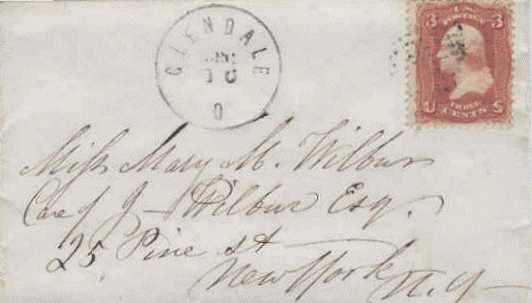 GLENDALE
10
O
3 U.S. 3
POSTAGE
U THREE S
CENTS
Miss Mary M. Wilbur
Care of J Wilbur Esq.
25 Pine st
New York N.Y